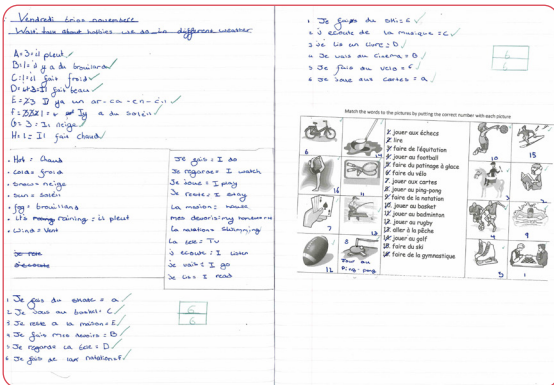 Vendredi trios novembre
Wait: talk about hobbies we do in different weather
A=3=il pleut
B=1=il y a du brouillard
il fait froid
il fait beau
E= Il ya un or-ca-cn-cin
Il y a du soleil
G=3=Il neige
H=1=Il fait chaud
• Hot = chaud
• Cold = froid
• Snow = neige
• Sun = soleil
• fog = brouillard
• its raining = il pleut
• Wind = Vent
Je fais = I do
Je regarde = I watch
Je joue = I play
Je reste = I stay
La maison = house
mes devoirs = my homework
La natation = Swimming
La tele = TV
J ecoute = I listen
Je vais = I go
Je lis = I read
1 Je fais du skate = a
2 Je joue au basket = C
3 Je reste a la maison = E
4 Je fais mes devoirs = B
5 Je regarde la tele = D
6 Je fais de la natation = F
6
6
1 Je fais du ski = E
2 J ecoute de la musique = C
3 Je lis un livre = D
4 Je vais au cinema = B
5 Je fais du velo = F
6 Je joue aux cartes = a
6
6
Match the words to the pictures by putting the correct number with each picture
1. jouer aux échecs
2. lire
3. faire de l'équitation
4. jouer au football
5. faire du patinage à glace
6. faire du vélo
7. jouer aux cartes
8. jouer au ping-pong
9. faire de la natation
10. jouer au basket
11. jouer au badminton
12. jouer au rugby
13. aller à la pêche
14. jouer au golf
15. faire du ski
16. faire de la gymnastique
6
14
10
15
16
11
3
2
7
13
4
9
12
8
Jouer au
Ping-pong
5
1